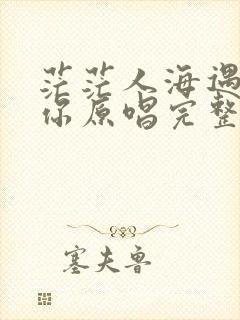 茫茫人海遇
你原唱完整
塞夫鲁